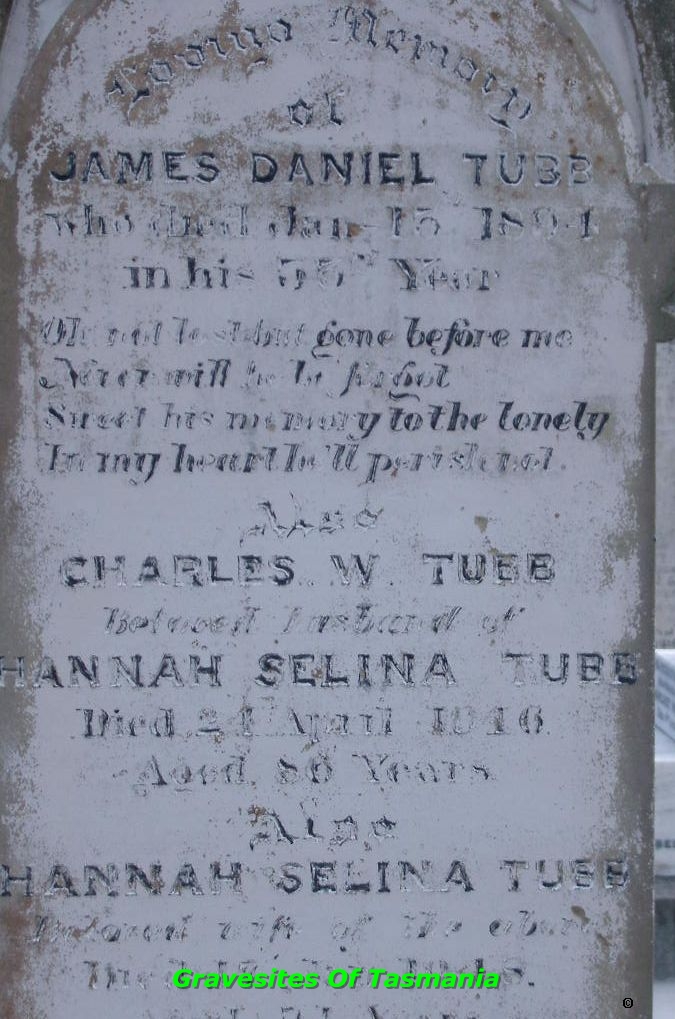 Loving Memory
of
JAMES DANIEL TUBB
who died Jan. 15th 1894
in his 55th Year
Oh not lost but gone before me
Never will he be forgot
Sweet his memory to the lonely
In my heart he'll perish not.
Also
CHARLES W. TUBB
Beloved husband of
HANNAH SELINA TUBB
Died 24 April 1946
Aged 86 Years
Also
HANNAH SELINA TUBB
Beloved wife of the above
Died
Gravesites Of Tasmania
©